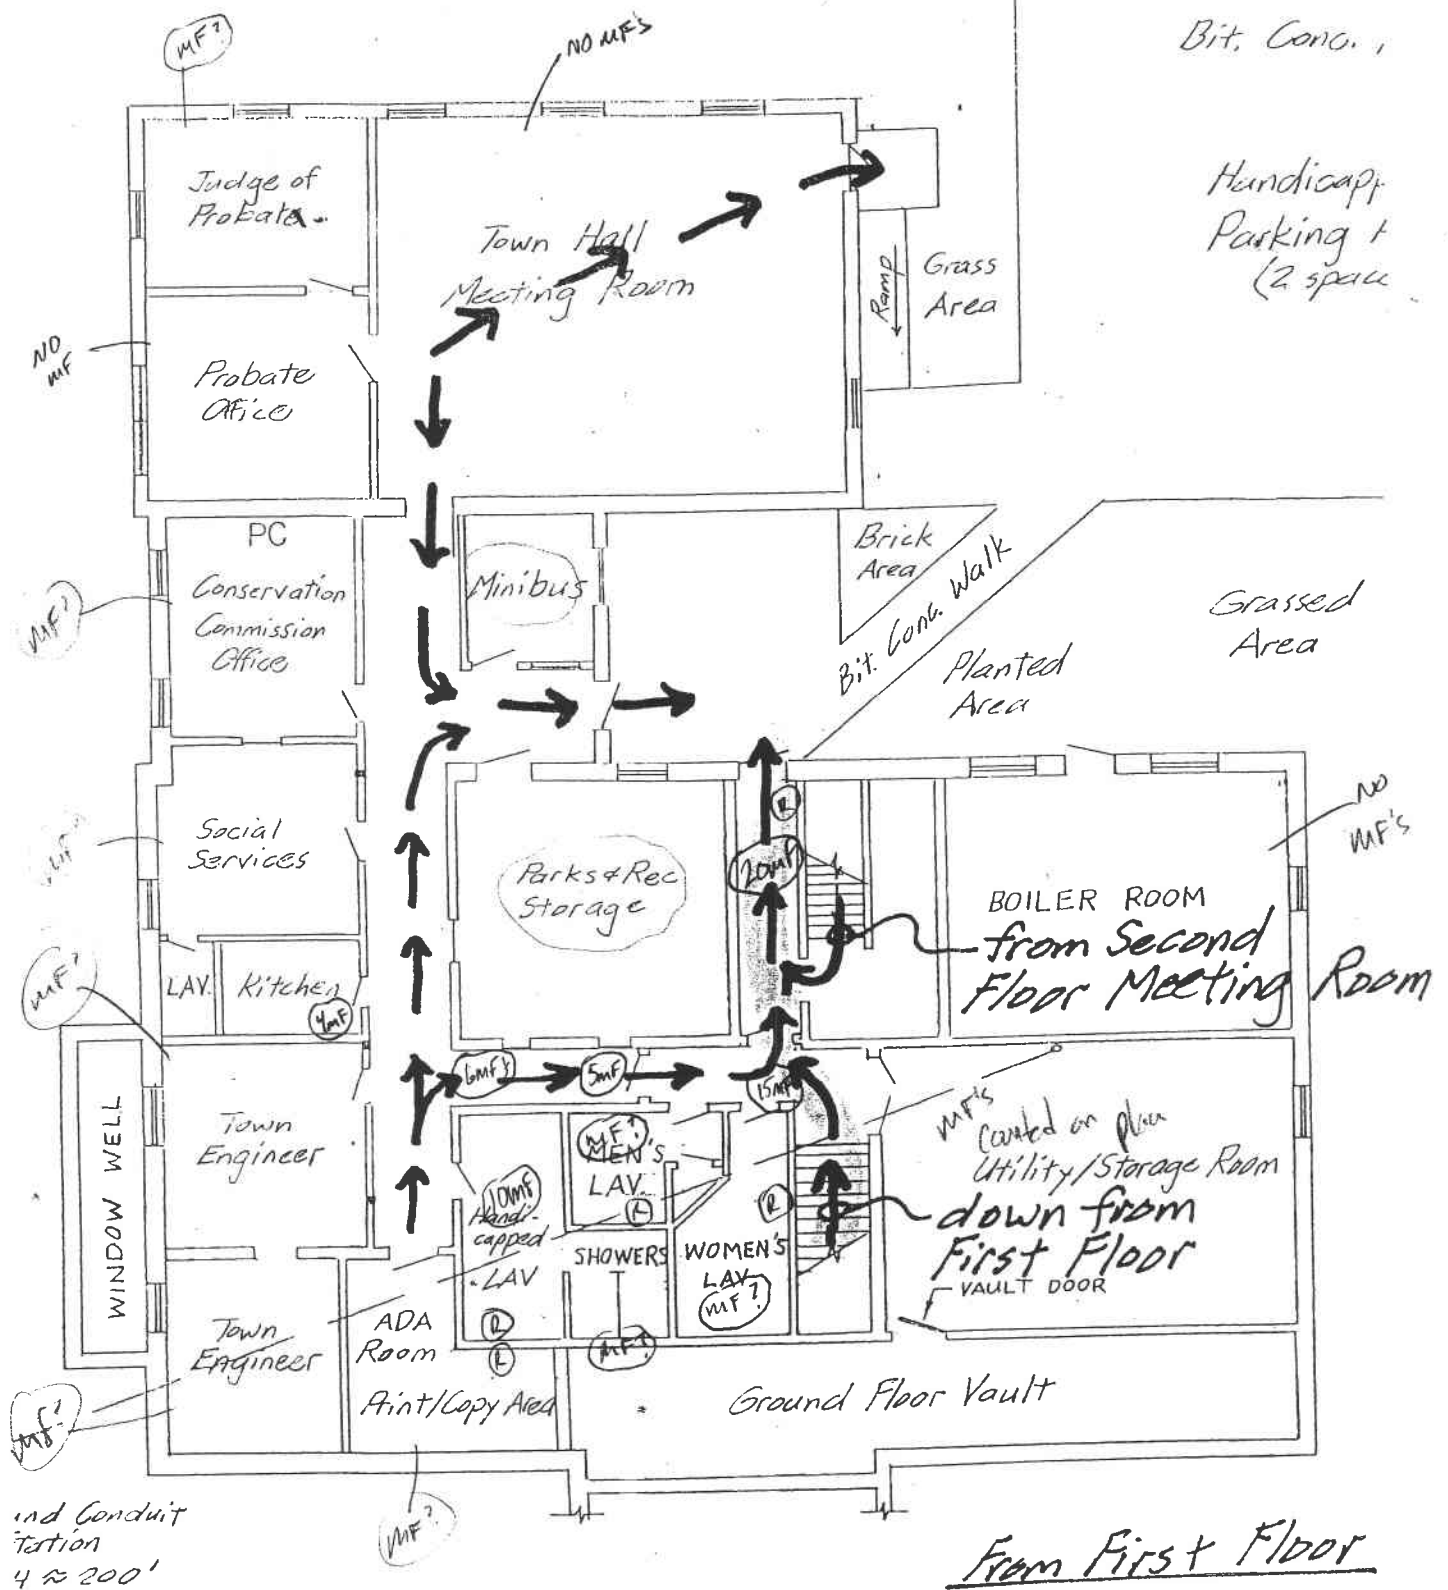 MF?
NO MF'S
Bit. Conc.
Judge of
Probate
Handicapp
Parking
(2 spac
Town Hall
Meeting Room
Ramp
Grass
Area
NO
MF
Probate
Office
PC
Conservation
Commission
Office
MF?
Minibus
Brick
Area
Bit. Conc. Walk
Grassed
Area
Planted
Area
Social
Services
Parks & Rec
Storage
R
20MF
NO
MF'S
BOILER ROOM
from Second
Floor Meeting Room
MF?
LAV.
Kitchen
4MF
6MF's
5MF
15MF
WINDOW WELL
Town
Engineer
MF?
MEN'S
LAV.
R
MF's
Counted on plan
Utility/Storage Room
10MF
Handi-
capped
LAV
SHOWERS
WOMEN'S
LAV.
MF?
R
down from
First Floor
VAULT DOOR
Town
Engineer
ADA
Room
R
R
MF?
Print/Copy Area
Ground Floor Vault
MF?
MF?
ind Conduit
tation
4 ≈ 200'
From First Floor